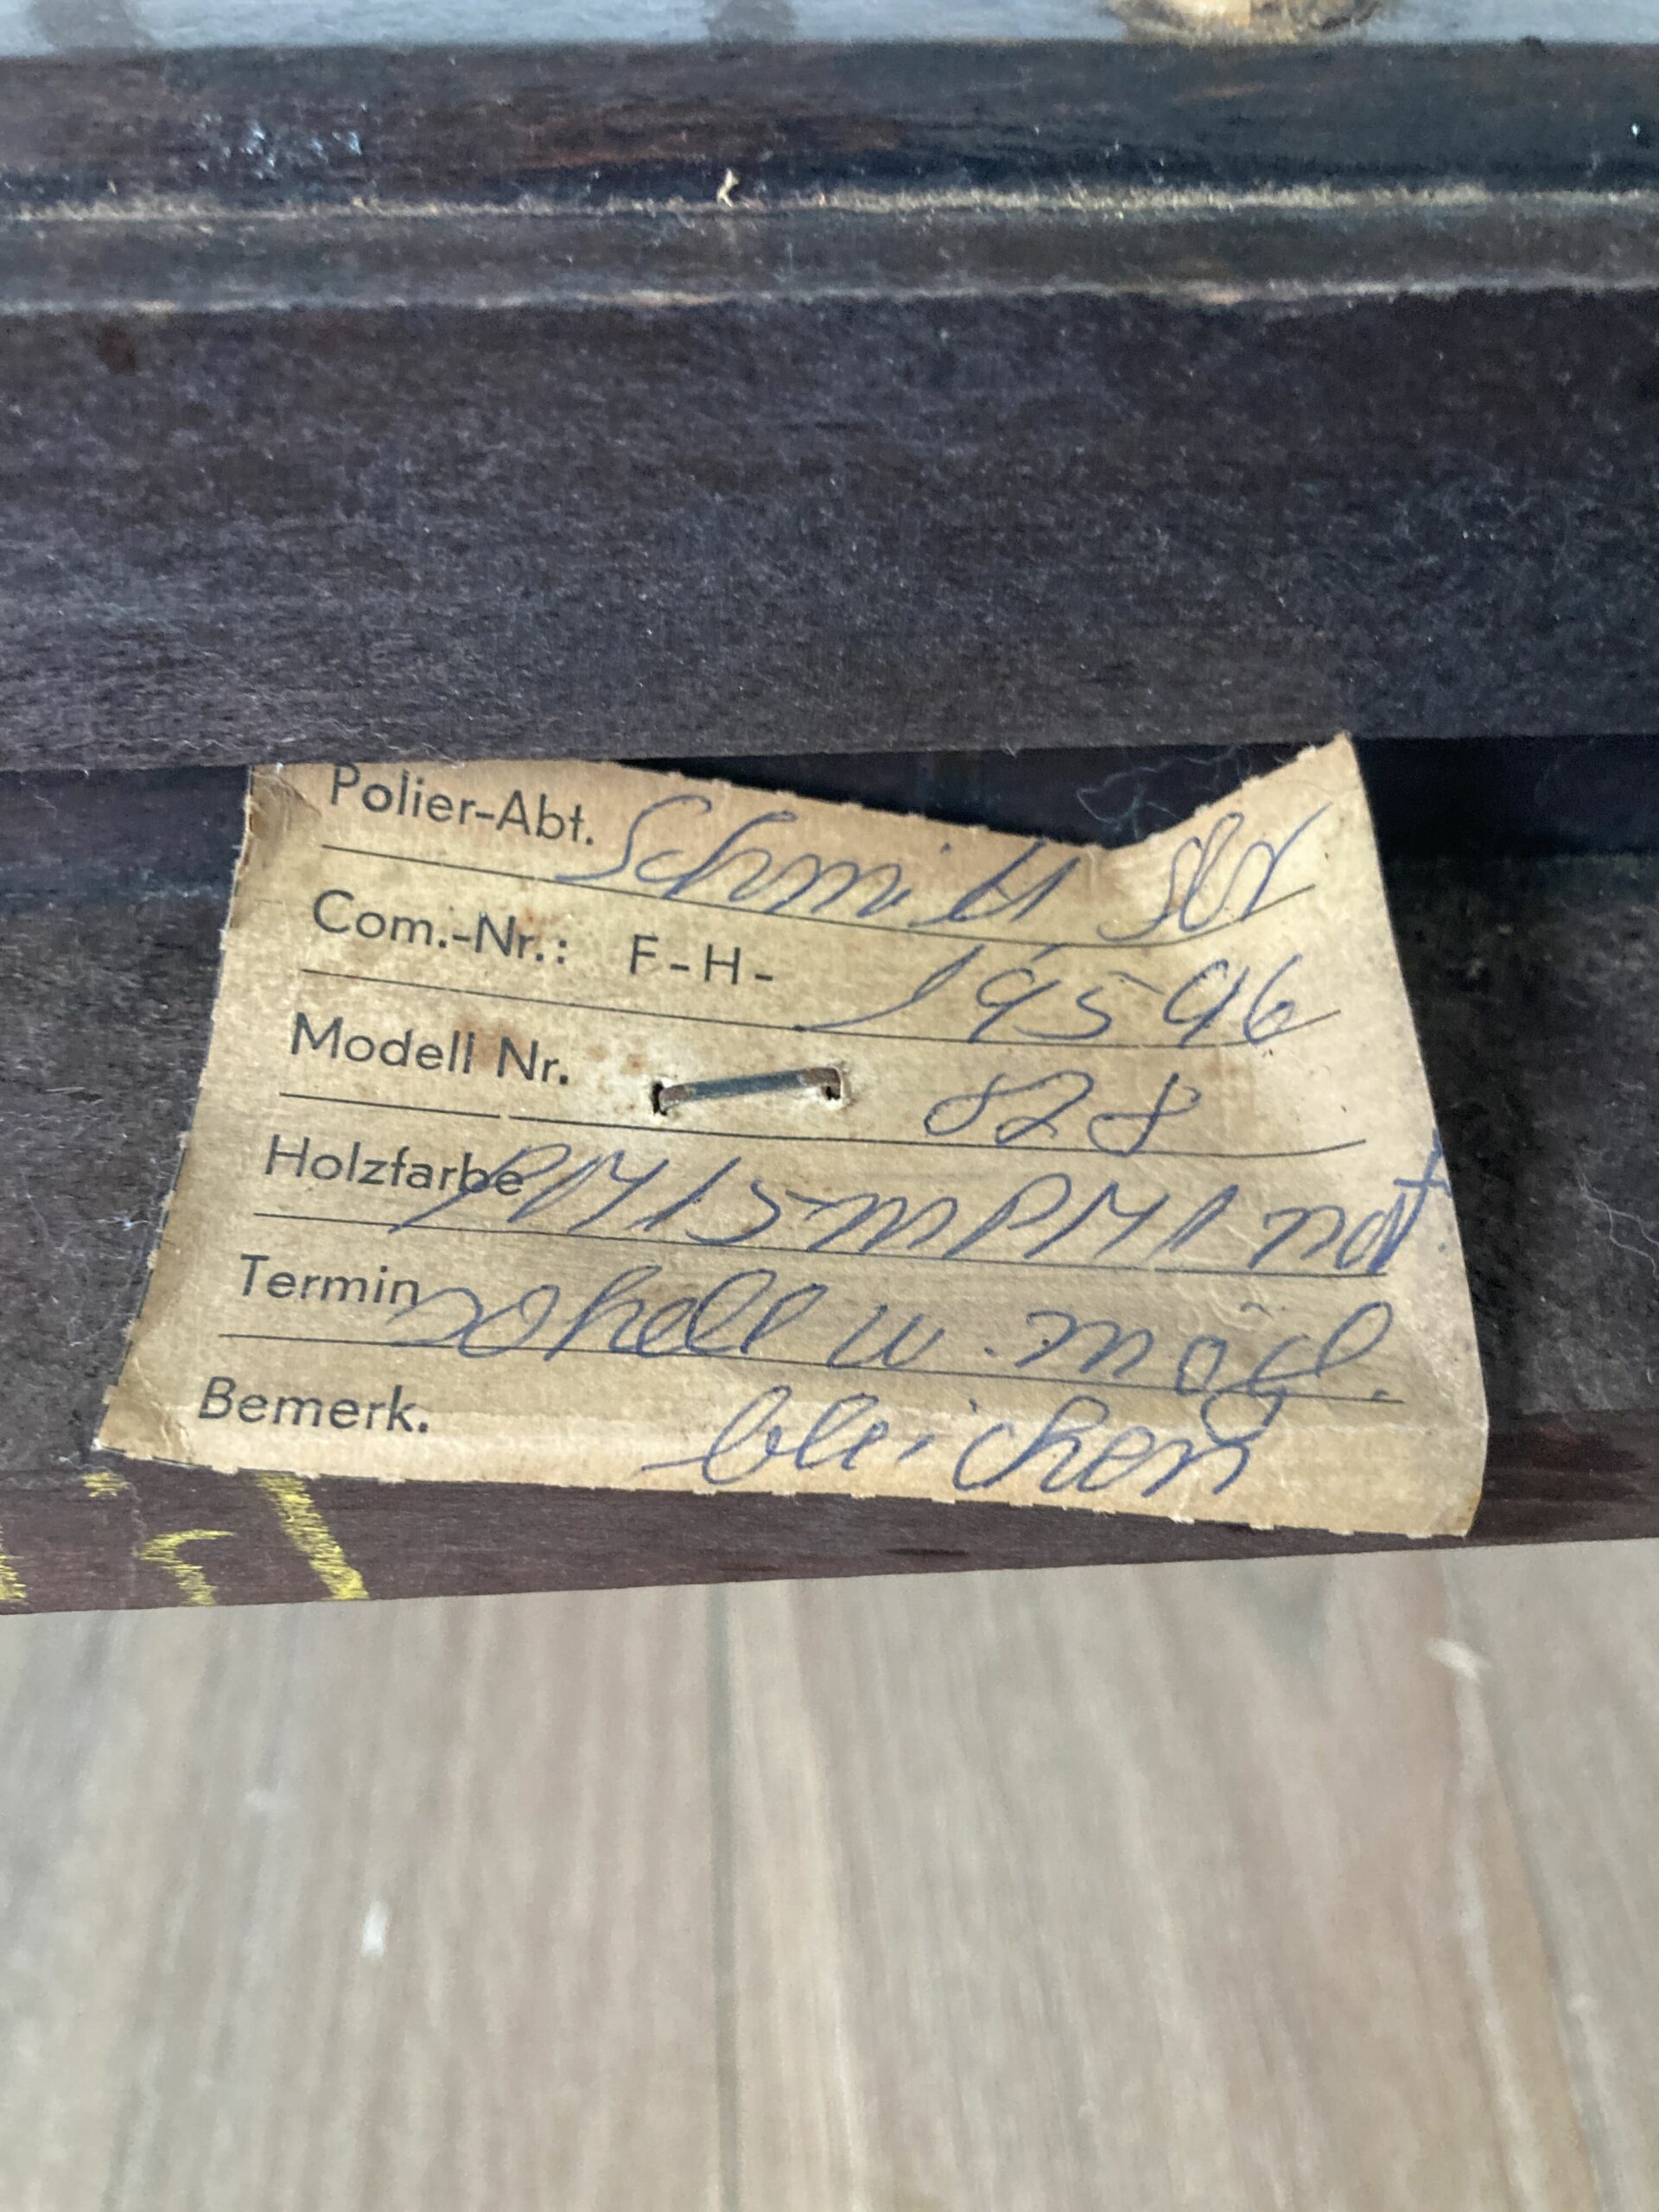 Polier-Abt. Schmitt
Com.-Nr.: F-H- 19596
Modell Nr. 828
Holzfarbe PM15 m PM1 not.
Termin hell w. mögl.
Bemerk. bleichen